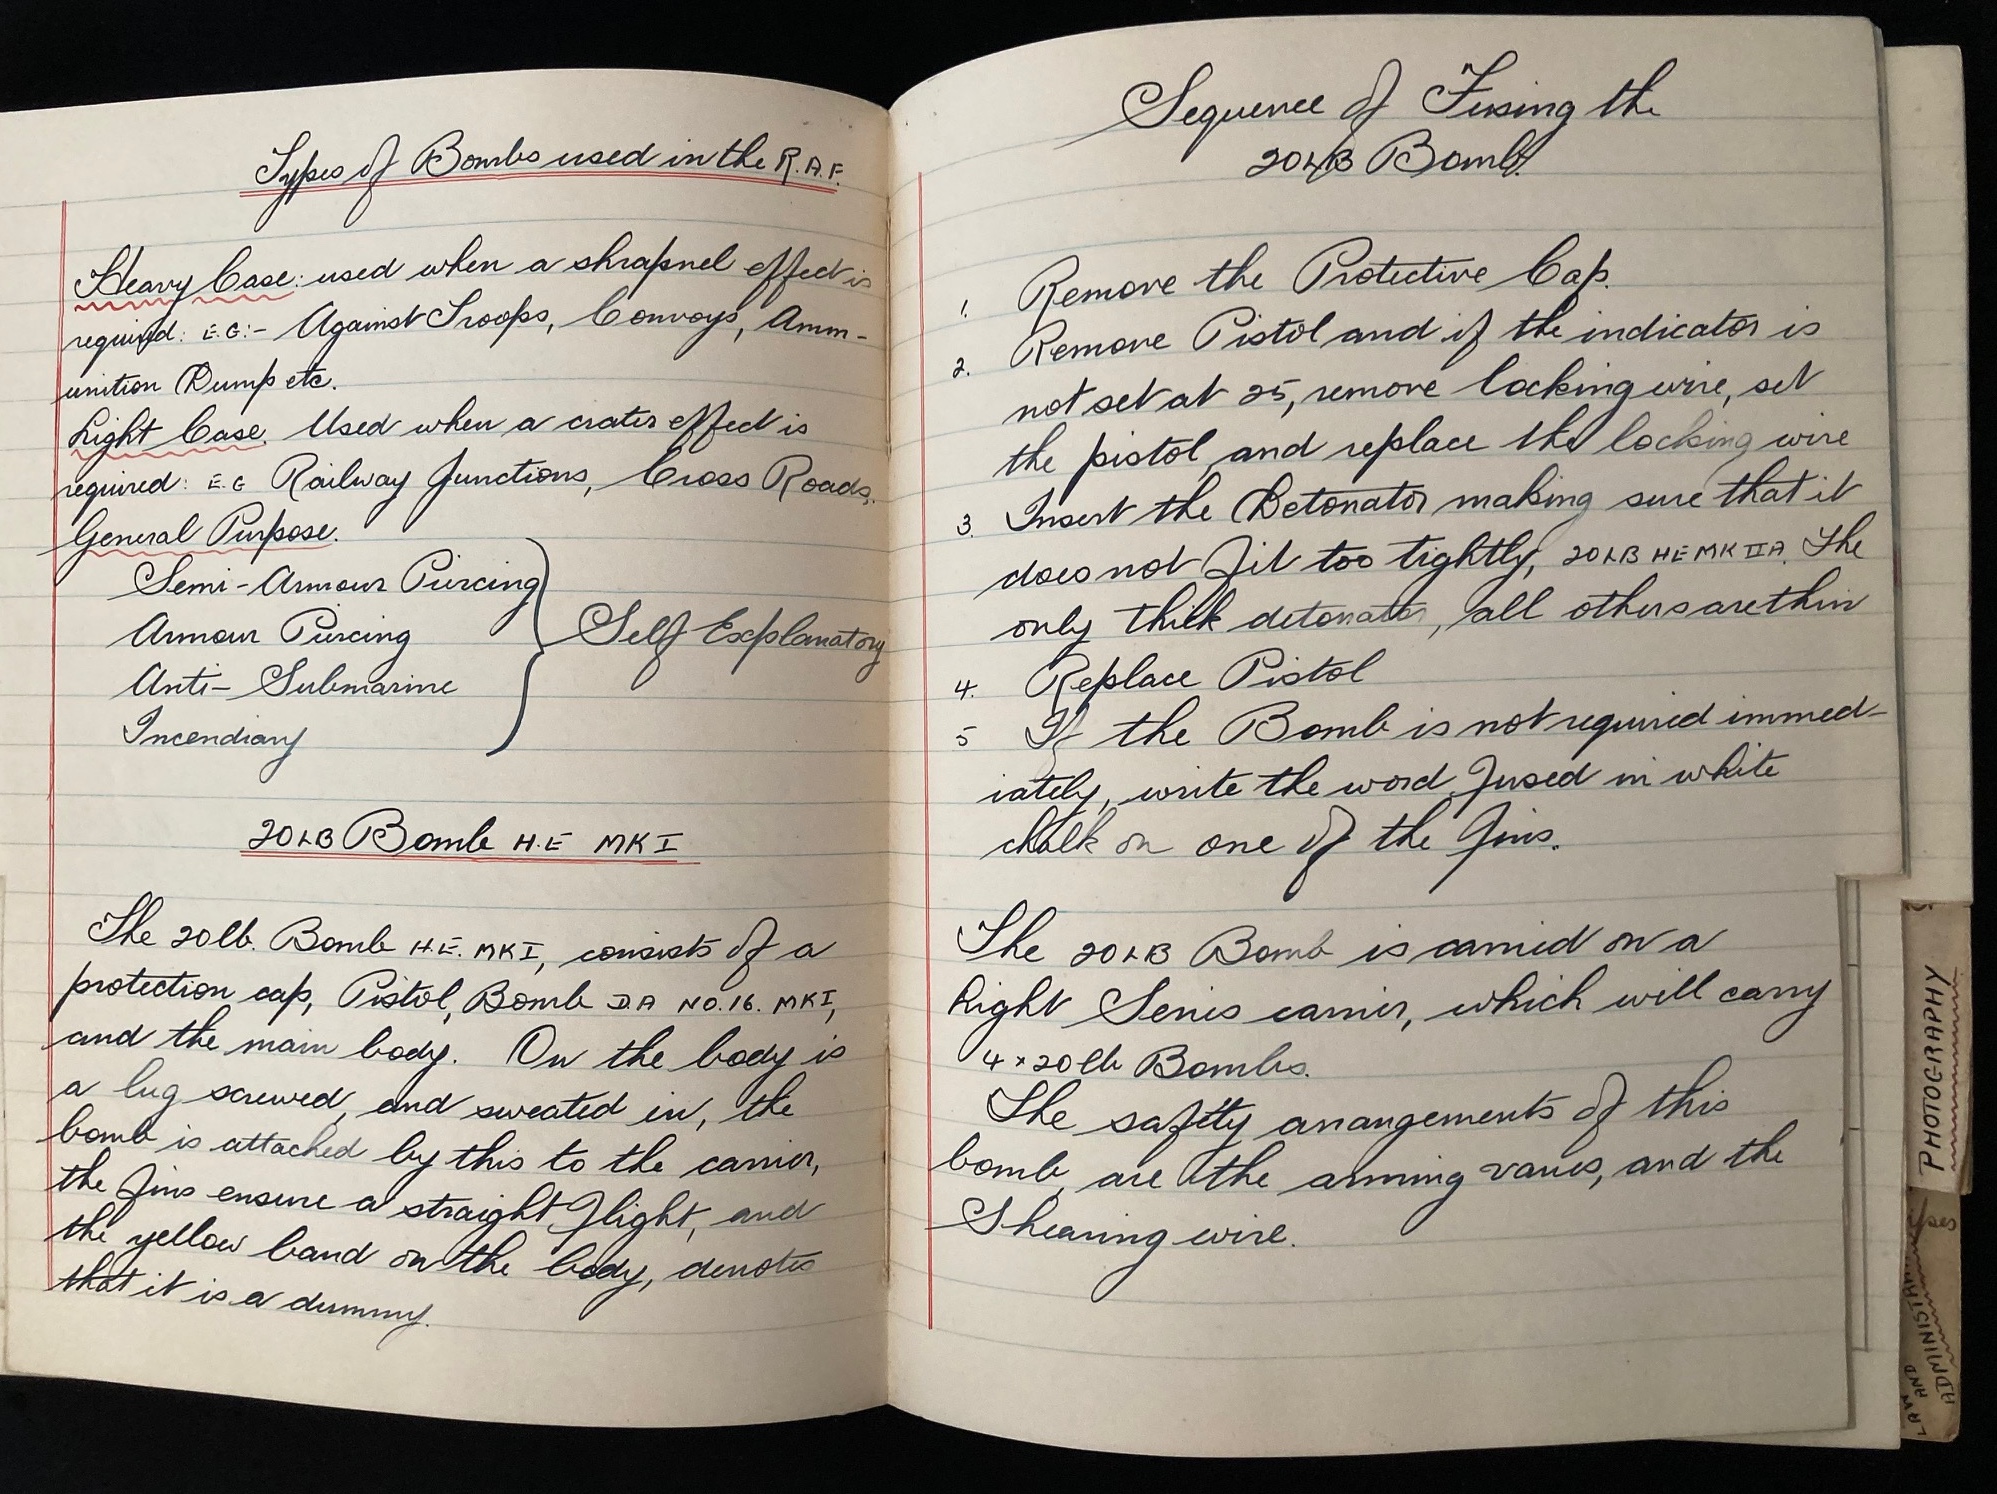 Types of Bombs used in the R.A.F.
Heavy Case: used when a shrapnel effect is
required: E.G:- Against Troops, Convoys, Amm-
unition Dump etc.
Light Case. Used when a crater effect is
required: E.G Railway Junctions, Cross Roads.
General Purpose.
Semi-Armour Piercing
Armour Piercing
Self Explanatory
Anti-Submarine
Incendiary
20LB Bomb H.E MK I
The 20lb. Bomb H.E. MK I, consists of a
protection cap, Pistol, Bomb D.A NO.16. MK I,
and the main body. On the body is
a lug screwed, and sweated in, the
bomb is attached by this to the carrier,
the fins ensure a straight flight, and
the yellow band on the body, denotes
that it is a dummy.
Sequence of Fusing the
20LB Bomb.
1. Remove the Protective Cap.
2. Remove Pistol and if the indicator is
not set at 25, remove locking wire, set
the pistol, and replace the locking wire
3. Insert the Detonator making sure that it
does not fit too tightly, 20LB HE MK IIA. The
only thick detonator, all others are thin
4. Replace Pistol
5 If the Bomb is not required immed-
iately, write the word fused in white
chalk on one of the fins.
The 20LB Bomb is carried on a
Light Series carrier, which will carry
4 x 20lb Bombs.
The safety arrangements of this
bomb, are the arming vanes, and the
Shearing wire.
PHOTOGRAPHY
LAW
AND
ADMINISTRATION